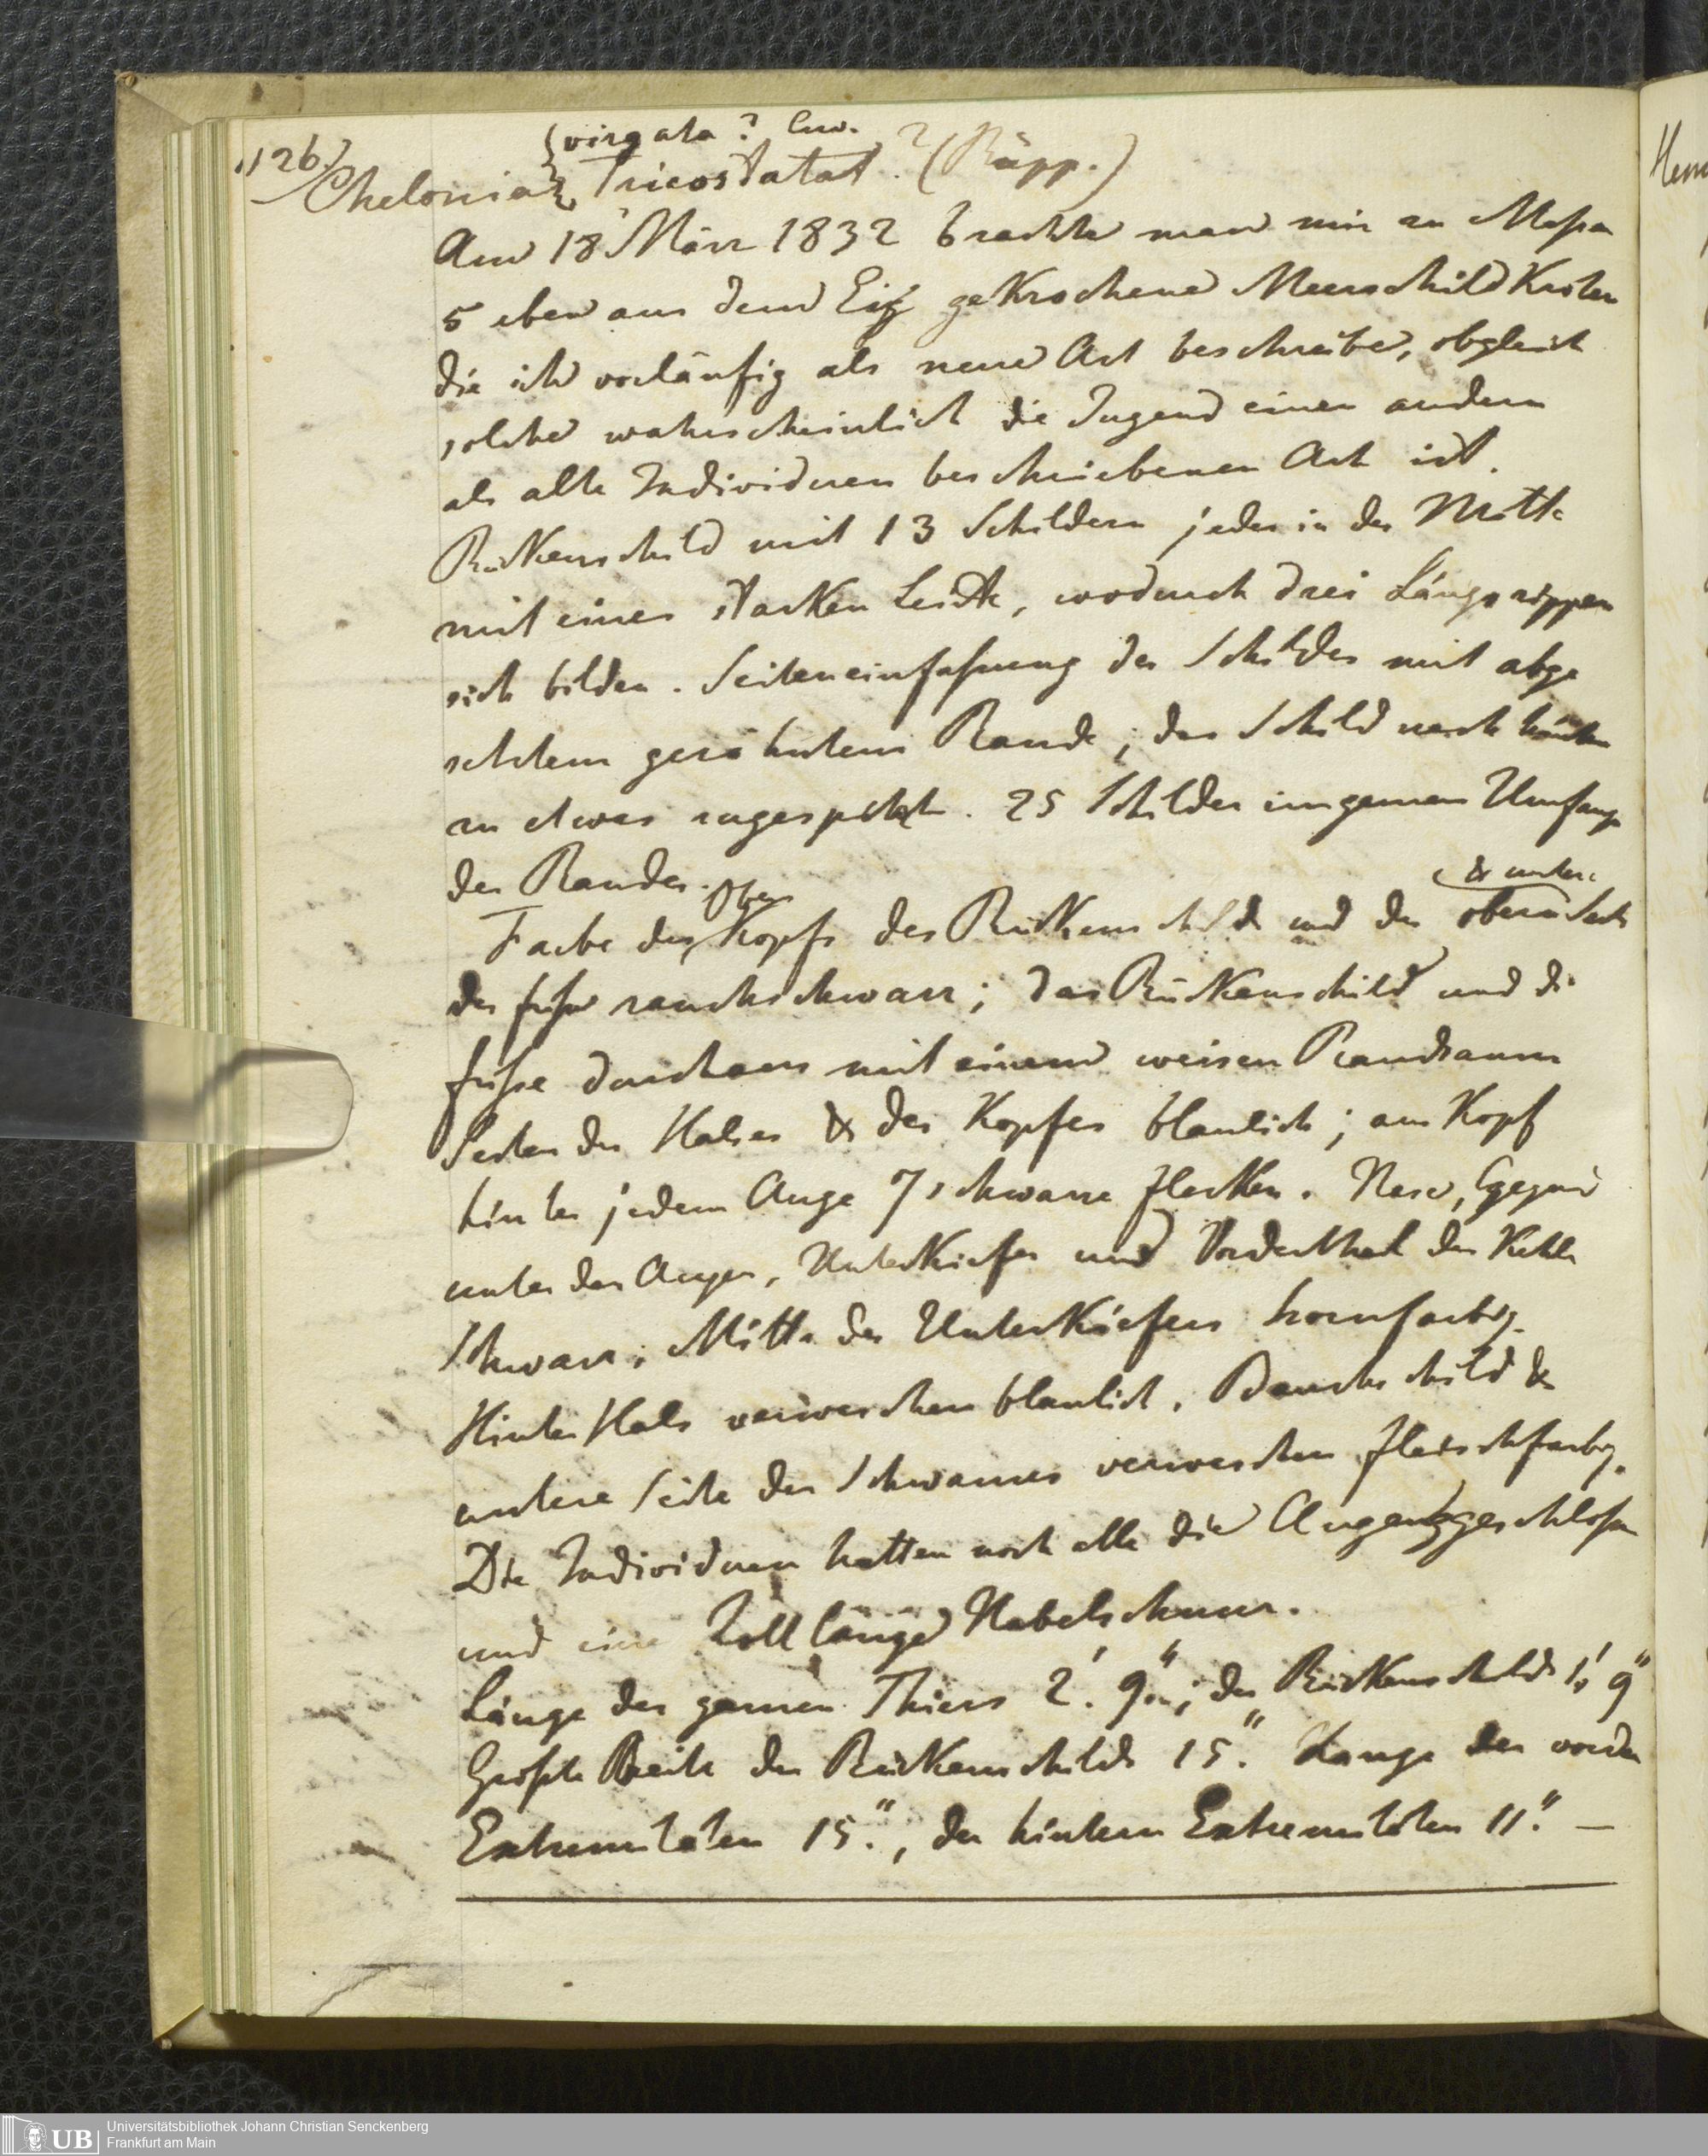 126)
virgata? Cuv.
Chelonia Tricostata? (Rüpp.)
Am 18 März 1832 brachte man mir zu Massa
5 eben aus dem Ei gekrochene Meerschildkroten
die ich vorläufig als neue Art beschreibe, obgleich
solche wahrscheinlich die Jugend einer andern
als alte Individuen beschriebenen Art ist.
Rükenschild mit 13 Schildern jedes in der Mitte
mit einer starken Leiste, wodurch drei Längsrippen
sich bilden. Seiteneinfassung des Schildes mit abge
setztem gezähntem Rande; das Schild nach hinten
zu etwas zugespitzt. 25 Schilder im ganzen Umfange
des Randes.
Ober & untere
Farbe des Kopfs des Rükenschilds und der obern Seite
der füsse rauchschwarz; das Rükenschild und die
füsse durchaus mit einem weisen Randsaum
Seiten des Halses & des Kopfes blaulich; am Kopf
hinter jedem Auge 7 schwarze flecken. Nase, Gegend
unter den Augen, Unterkiefer und Vordertheil der Kehle
schwarz; Mitte des Unterkiefers hornfarbig.
Hinter Hals verwaschen blaulich. Bauchschild &
untere Seite des Schwanzes verwaschen fleischfarbig.
Die Individuen hatten noch alle die Augen geschlossen
und eine Zoll lange Nabelschnur.
Länge des ganzen Thiers 2' 9"; des Rückenschilds 1' 9"
Grosste Breite des Rückenschilds 15." Länge der vordern
Extremitäten 15.", der hintern Extremitäten 11." —
UB
Universitätsbibliothek Johann Christian Senckenberg
Frankfurt am Main